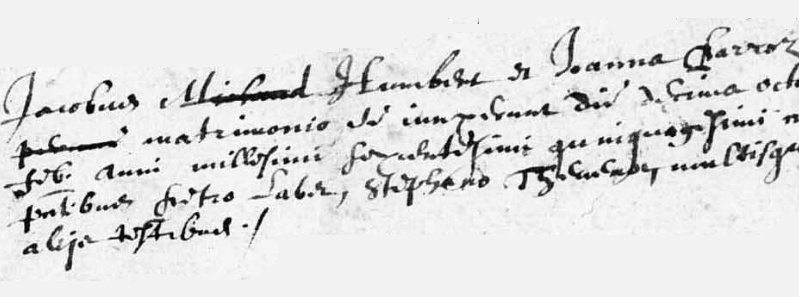 Jacobus Michaud Humbert et Joanna Parroz
matrimonio se iunxerunt die decima octa
feb. anni millesimi sexcentesimi quinquagesimi
pntibus petro Laber, Stephano Thevenoz, multisque
alijs testibus ./